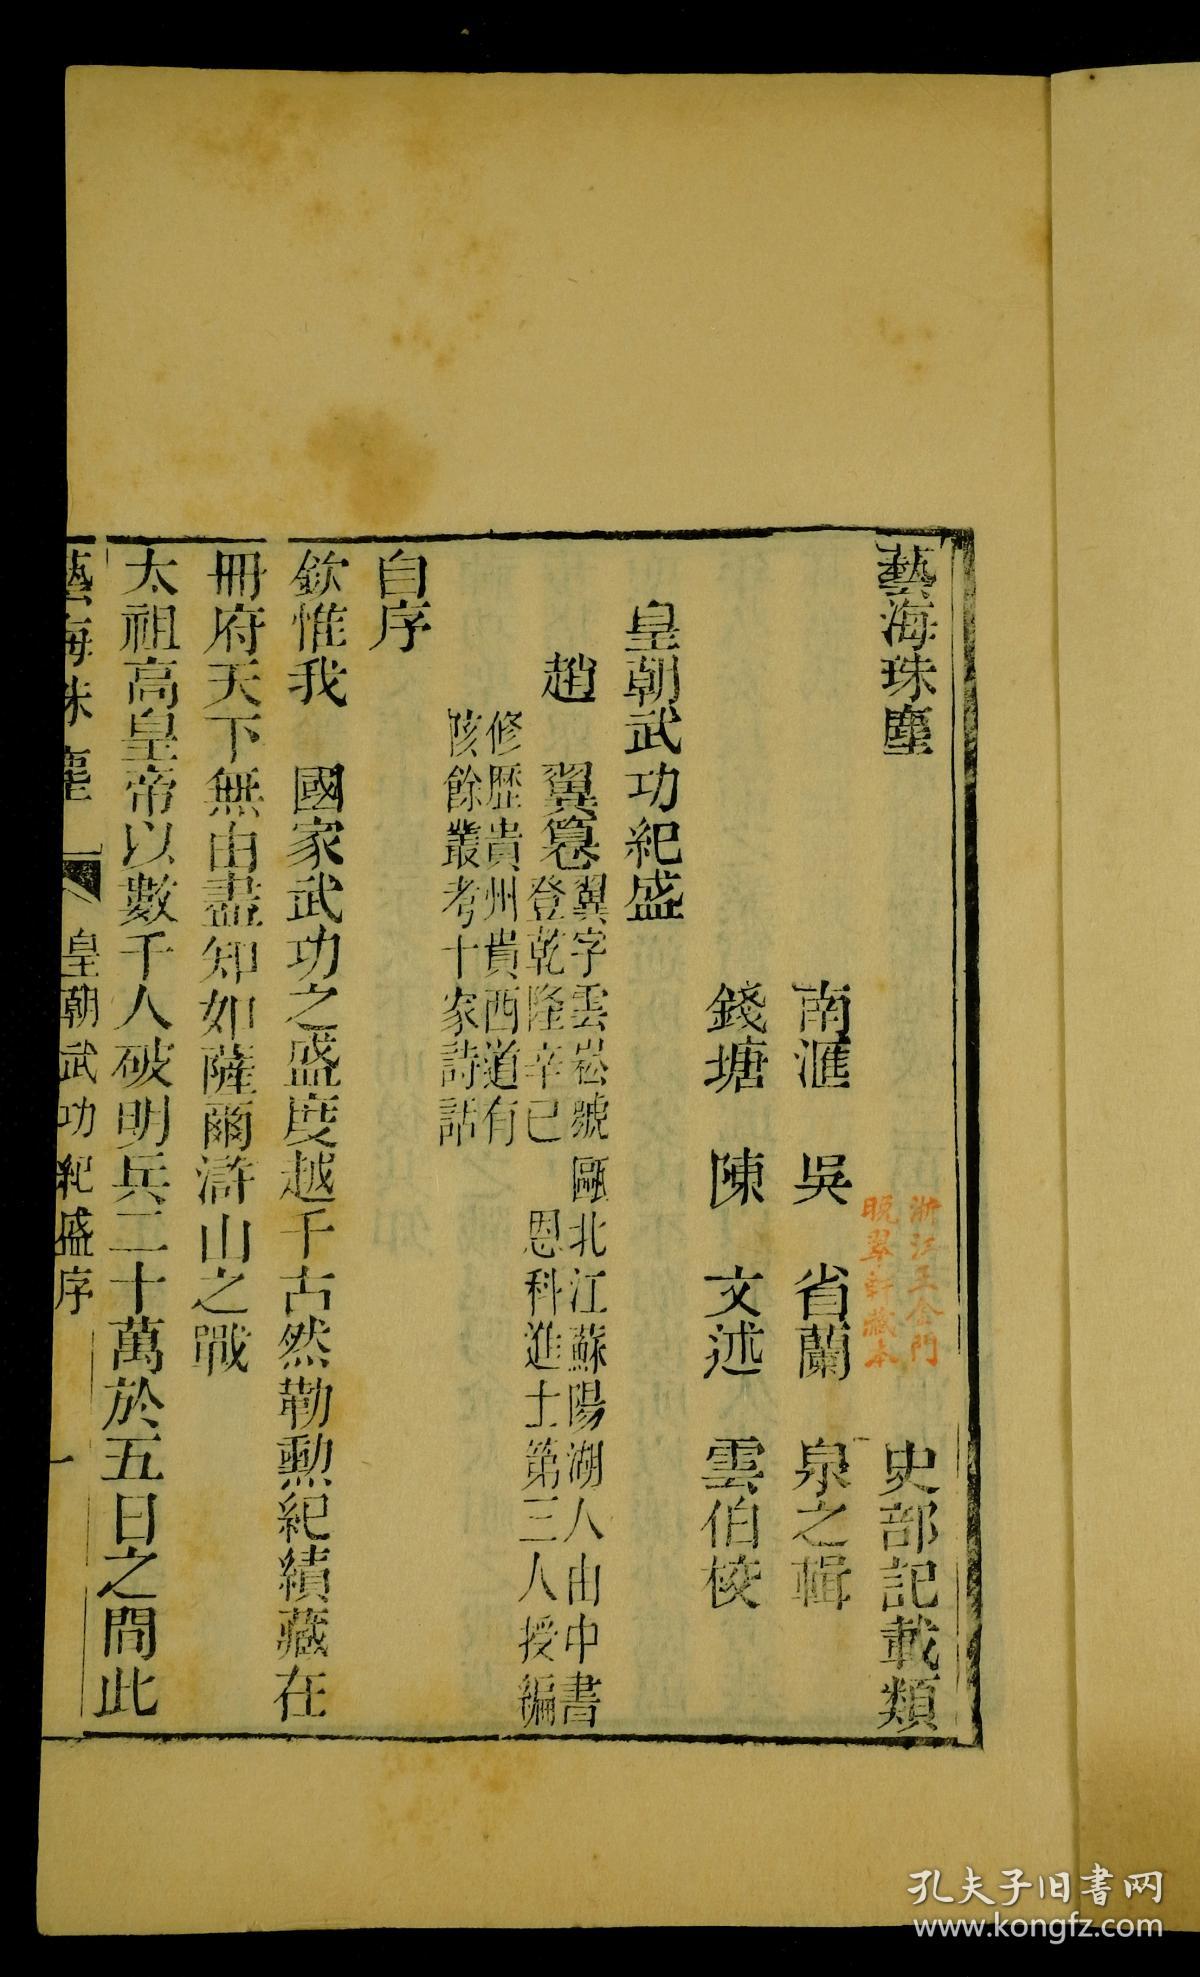 藝海珠塵　史部記載類
浙江王金門
晚翠軒藏本
南滙　吳　省蘭　泉之輯
錢塘　陳　文述　雲伯校
皇朝武功紀盛
趙　翼篹
翼字雲崧號甌北江蘇陽湖人由中書
登乾隆辛巳　恩科進士第三人授編
修歷貴州貴西道有
陔餘叢考十家詩話
自序
欽惟我　國家武功之盛度越千古然勒勲紀績藏在
冊府天下無由盡知如薩爾滸山之戰
太祖高皇帝以數千人破明兵二十萬於五日之間此
藝海珠塵　皇朝武功紀盛序　一
孔夫子旧书网
www.kongfz.com